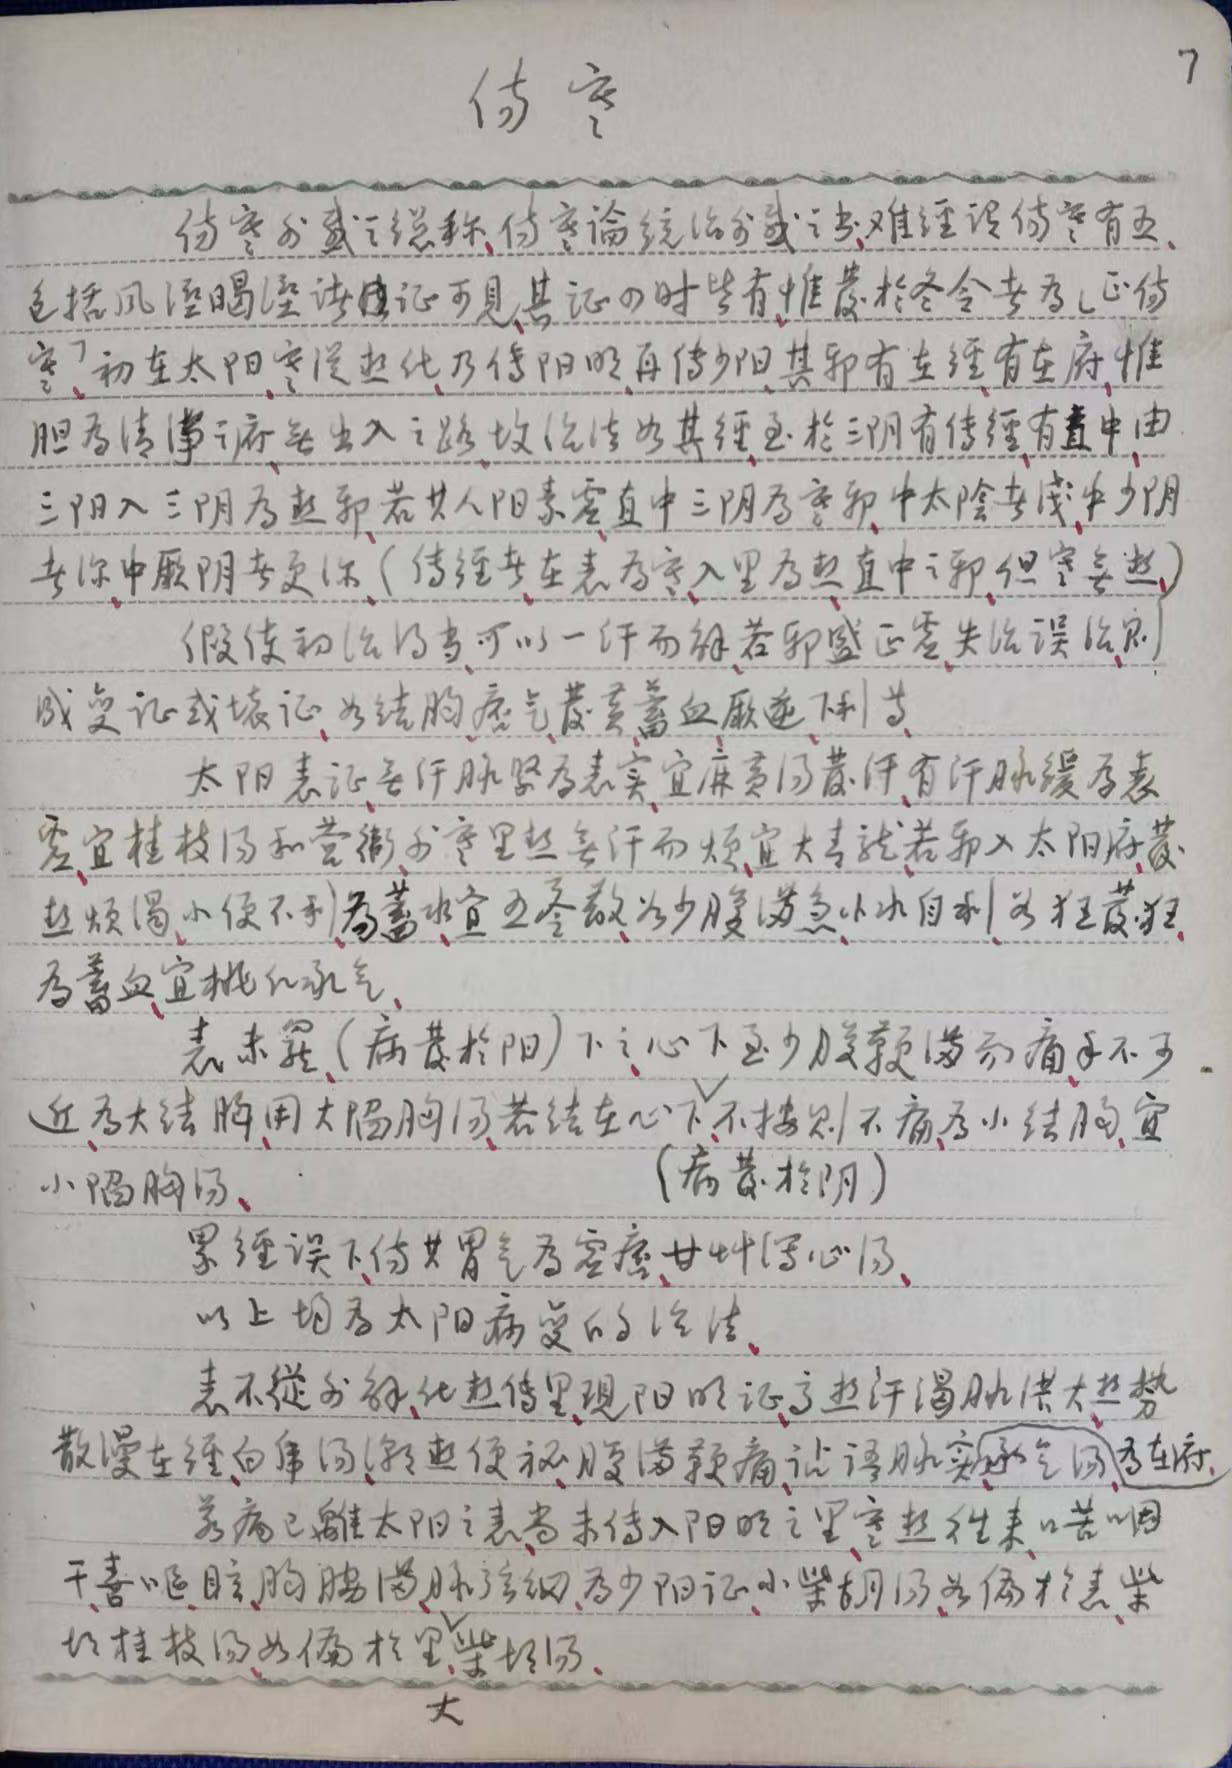 7
伤寒
伤寒外感之總称、伤寒論統治外感之书、难經说伤寒有五、
包括风湿暍湿诸温证可见、其证四时皆有、惟發於冬令者為「正伤
寒」初在太阳、寒従热化、乃传阳明、再传少阳、其邪有在經、有在府、惟
胆為清净之府、無出入之路、故治法如其經、至於三阴有传經、有直中、由
三阳入三阴為热邪、若其人阳素虚直中三阴為寒邪、中太陰者浅、中少阴
者深、中厥阴者更深、(传經者在表為寒、入里為热、直中之邪、但寒無热、)
假使初治得当、可以一汗而解、若邪盛正虚、失治误治、则
成变证或壞证、如结胸、痞气、發黄、蓄血、厥逆、下利等、
太阳表证、無汗脉緊為表实、宜麻黄汤發汗、有汗脉缓為表
虚、宜桂枝汤和营衛、外寒里热無汗而烦、宜大青龙、若邪入太阳府、發
热烦渴、小便不利、為蓄水、宜五苓散、如少腹满急、小水自利、如狂發狂、
為蓄血、宜桃仁承气、
表未罷、(病發於阳)下之、心下至少腹鞕满而痛、手不可
近、為大结胸、用大陷胸汤、若结在心下、不按则不痛、為小结胸、宜
小陷胸汤、 (病發於阴)
累經误下、伤其胃气為虚痞、甘艸泻心汤、
以上均為太阳病变的治法、
表不從外解、化热传里、現阳明证、高热汗渴脉洪大、热势
散漫在經、白虎汤、潮热便秘、腹满鞕痛、谵语脉实、承气汤、為在府、
若病已離太阳之表、尚未传入阳明之里、寒热往来、口苦咽
干、喜呕、目眩、胸脇满、脉弦细、為少阳证、小柴胡汤、如偏於表、柴
胡桂枝汤、如偏於里、柴胡汤、
大